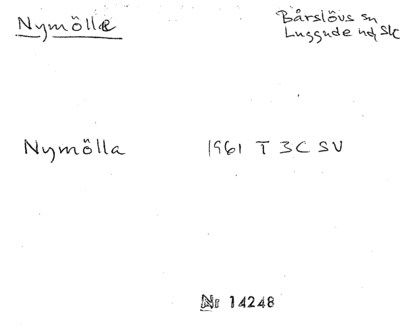 Nymölle
Bårslövs sn
Luggude hd, Sk
Nymölla 1961 T 3C SV
Nr 14248